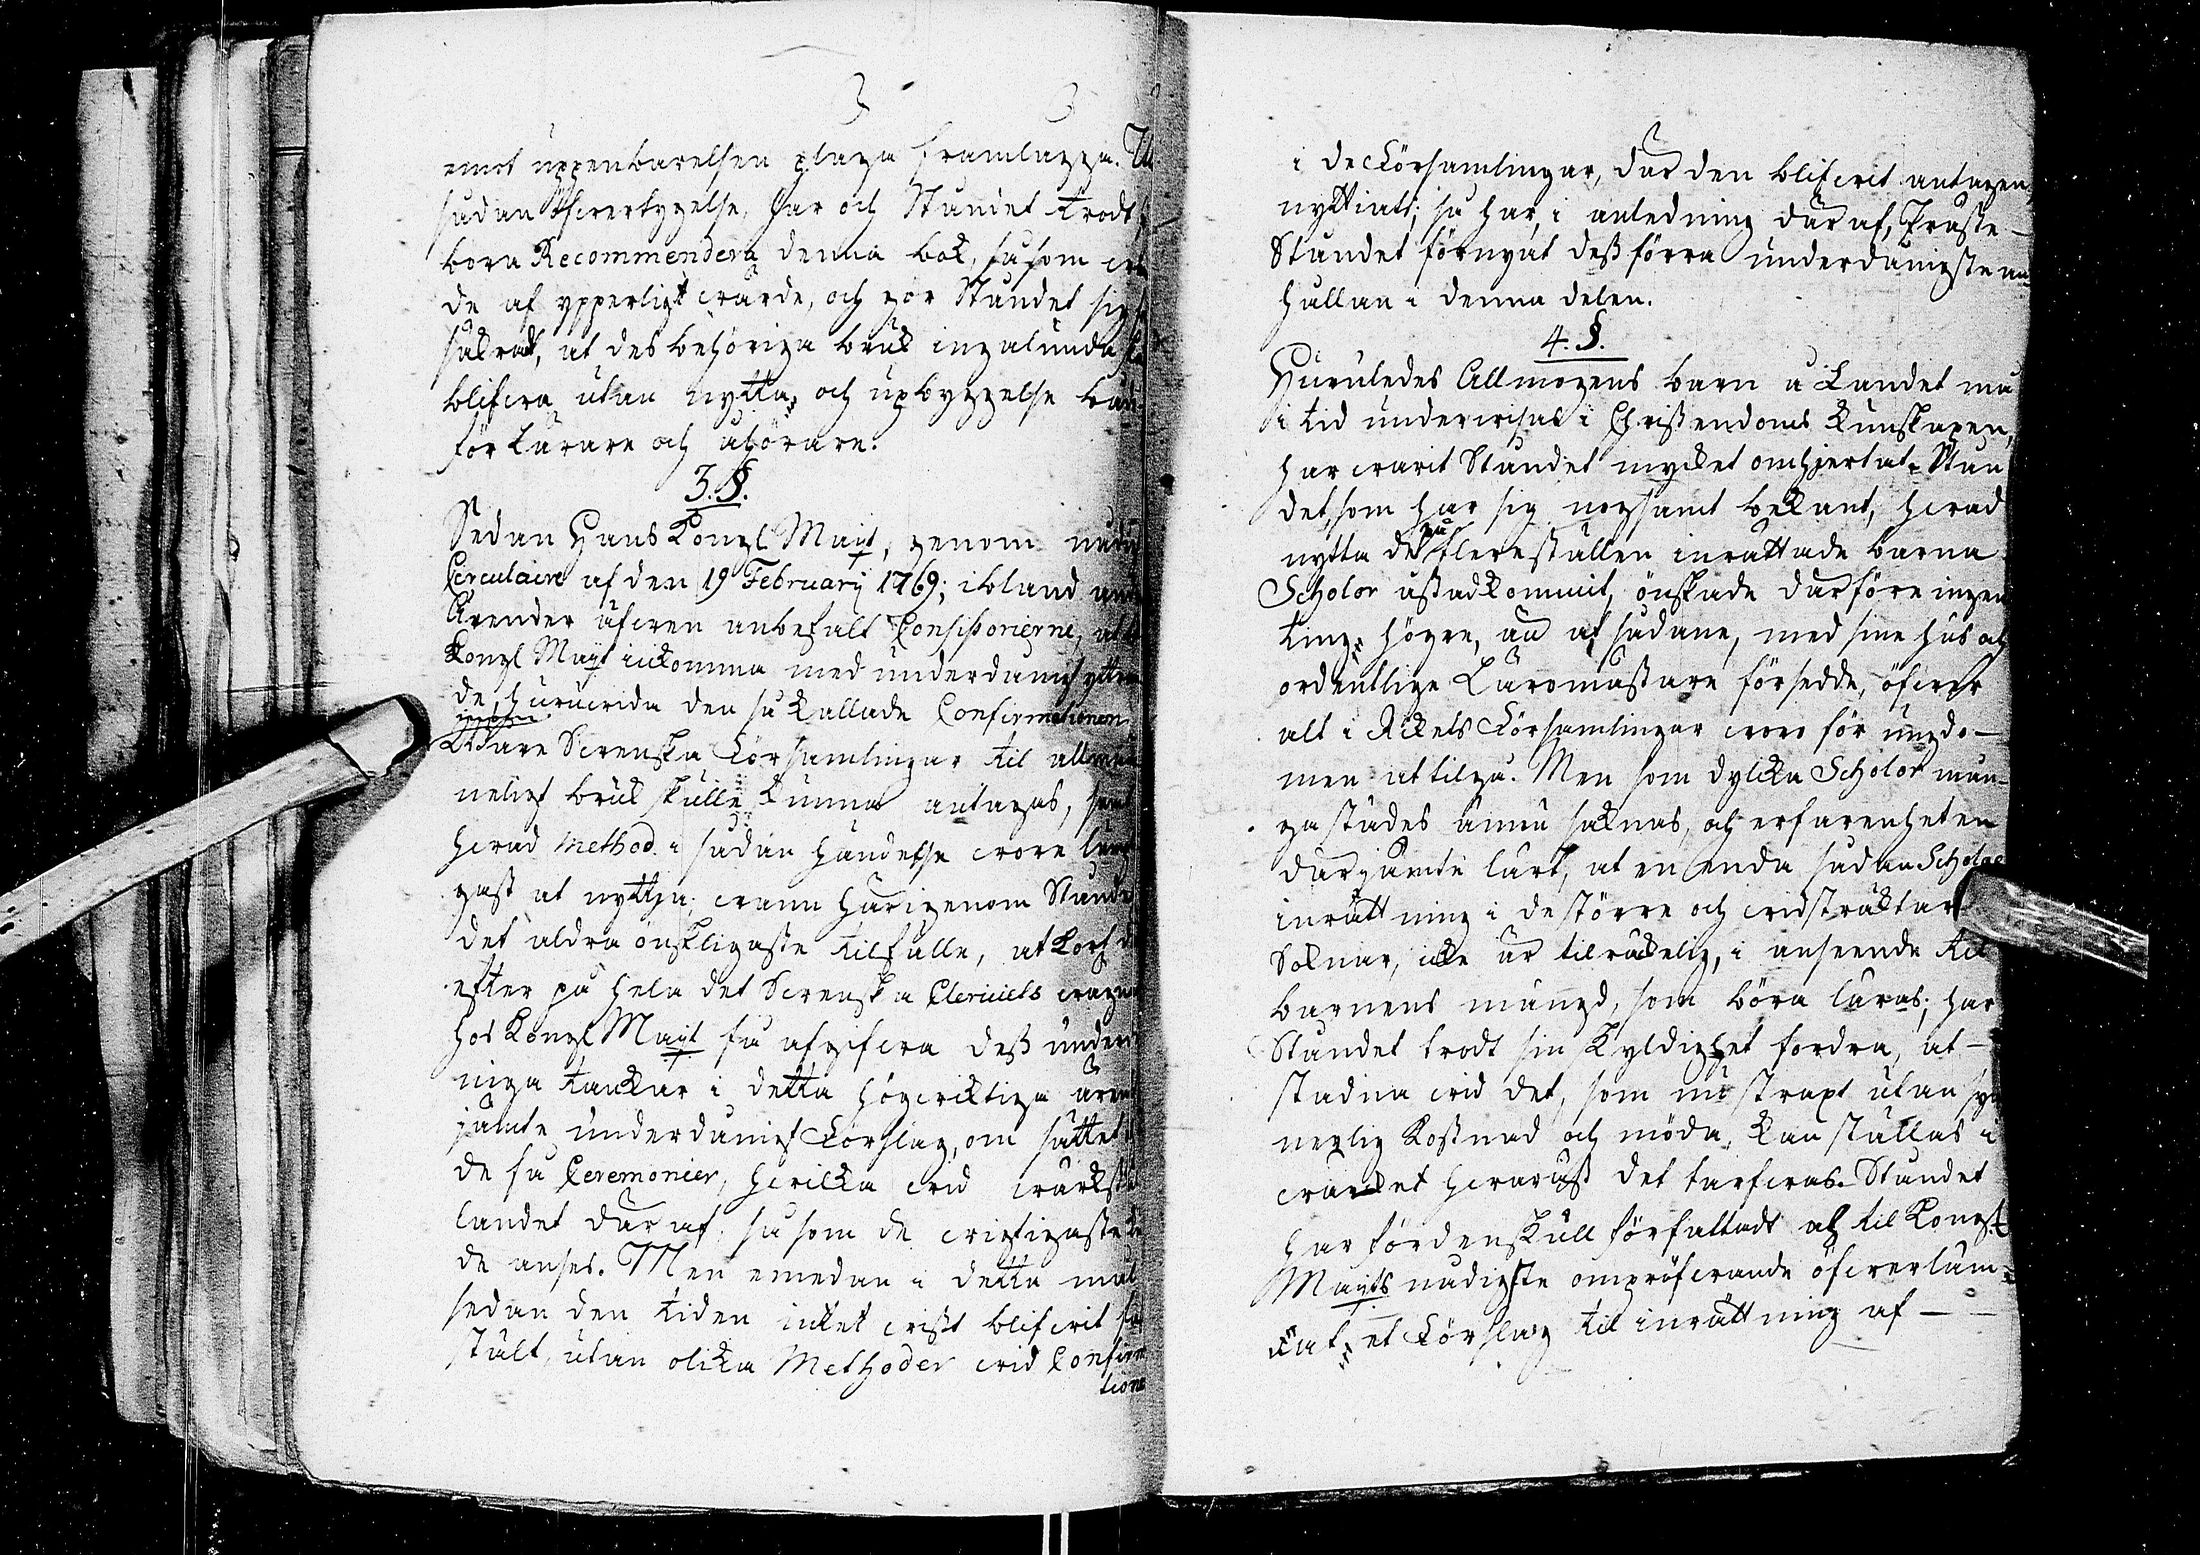 emot uppenbarelsen plaga framlägga.
sådan öfvertygelse, har och Ståndet trodt,
bora Recommendera denna bok, såsom
de af ypperligt värde, och gör Ståndet sig
säkrat, at des behöriga bruk ingalunda
blifva utan nytta, och upbyggelse
för Lärare och åhörare.
3. §.
Sedan Hans Kongl Mayt, genom
Circulaire af den 19 Februarij 1769; ibland
Ärender äfven anbefalt Consistorierne,
Kongl Mayt inkomma med underdånigt
de, huruvida den så kallade Confirmationen
Våre Svenska Församlingar til
neligt bruk skulle kunna antagas,
hvad Method i sådan händelse vore
gast at nyttja; vann härigenom
det aldra önskligaste tilfälle, at
efter på hela det Svenska Clericiets
hos Kongl Mayt få afgifva dess
niga tankar i detta högviktiga
jämte underdånigt Förslag, om sättet
de få Ceremonier, hvilka vid
landet där af, så som de vigtigaste
de anses. Men emedan i detta mål
sedan den tiden intet visst blifvit
stält, utan olika Methoder vid
tions
i de Församlingar, där den blifvit antagen,
nyttiats; så har, i anledning där af, Präste-
Ståndet förnyat dess förra underdånigste an-
hållan i denna delen.
4. §.
Huruledes Allmogens barn å Landet må
i tid undervisas i Christendoms kunskapen,
har varit Ståndet mycket omhjertat. Stån
det, som har sig nogsamt bekant, hvad
nytta de på flereställen inrättade barna
Scholor åstadkommit, önskade därföre ingen
ting högre, än at sådane, med sine hus och
ordentlige Läromästare försedde, öfver
alt i Rikets Församlingar vore för ungdo-
men at tilgå. Men som dylika Scholor mån-
gastädes ännu saknas, och erfarenheten
därjämte lärt, at en enda sådan Schole
inrättning i de större och vidsträktar
Soknar, icke är tilräkelig, i anseende til
barnens mängd, som böra läras; har
Ståndet trodt sin skyldighet fordra, at-
stadna vid det, som nu straxt utan
nerlig kostnad och möda, kan ställas i
värket hvaräst det tarfvas. Ståndet
har fördenskull författadt och til Kongl.
Mayts nådigste ompröfvande öfverläm=
nat, et Förslag til inrättning af -